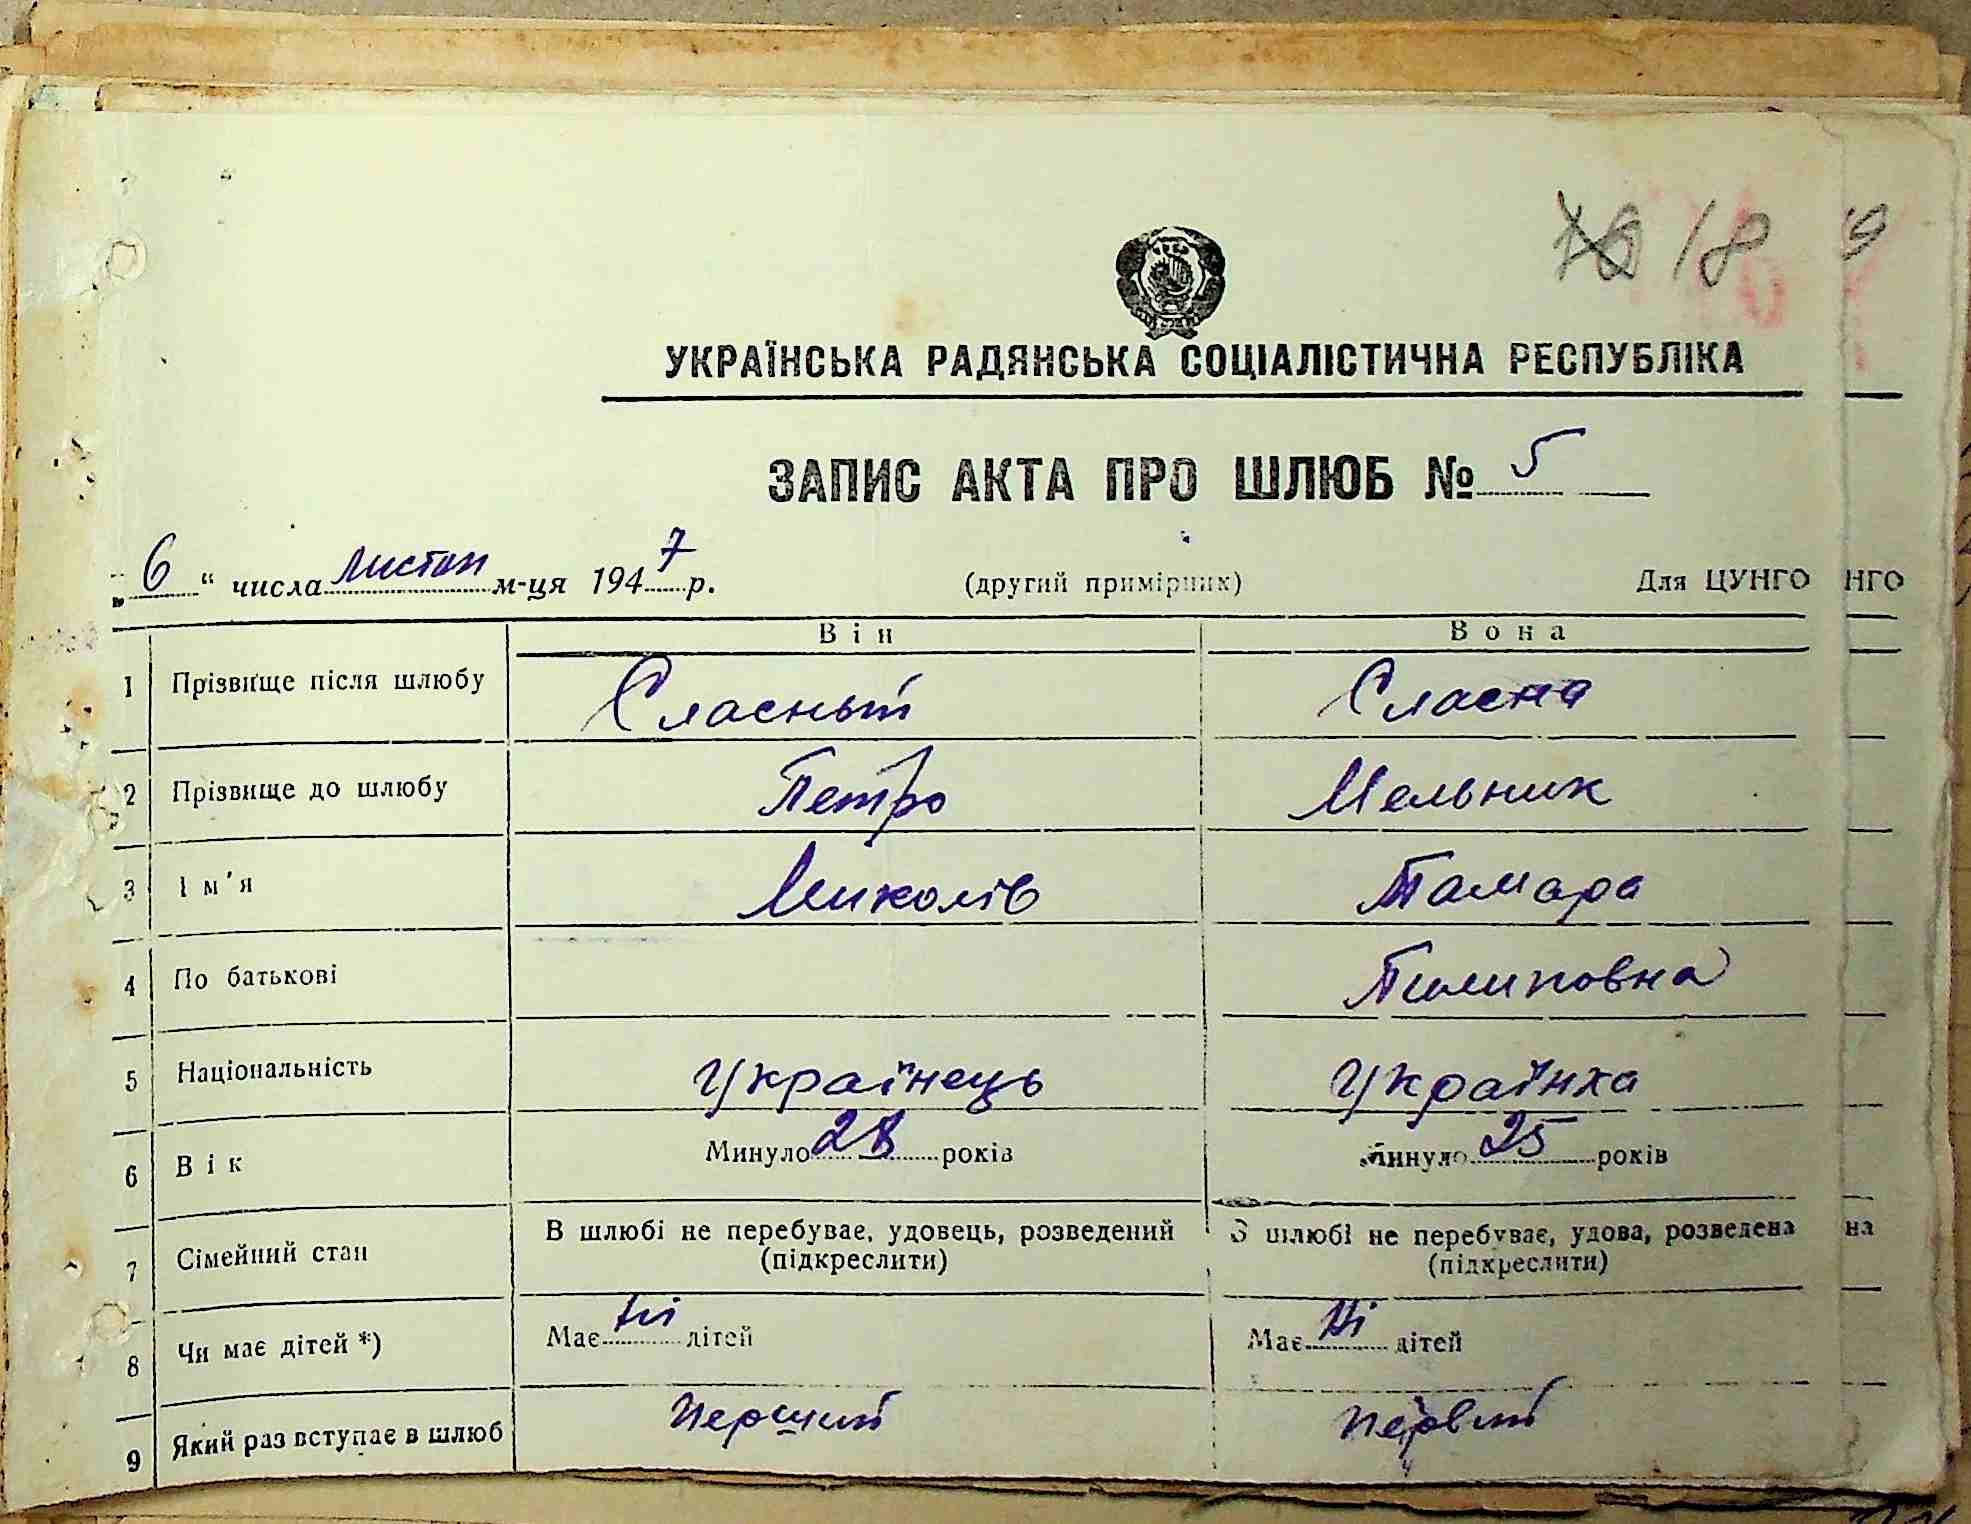 18 9
УКРАЇНСЬКА РАДЯНСЬКА СОЦІАЛІСТИЧНА РЕСПУБЛІКА
ЗАПИС АКТА ПРО ШЛЮБ № 5
„ 6 “ числа листоп м-ця 1947 р. (другий примірник) Для ЦУНГО НГО
Він Вона
1 Прізвище після шлюбу Сласный Сласна
2 Прізвище до шлюбу Петро Мельник
3 Ім'я Миколів Тамара
4 По батькові Пилиповна
5 Національність Українець Українка
6 Вік Минуло 28 років Минуло 25 років
7 Сімейний стан В шлюбі не перебуває, удовець, розведений В шлюбі не перебуває, удова, розведена на
(підкреслити) (підкреслити)
8 Чи має дітей *) Має ні дітей Має ні дітей
9 Який раз вступає в шлюб перший первий